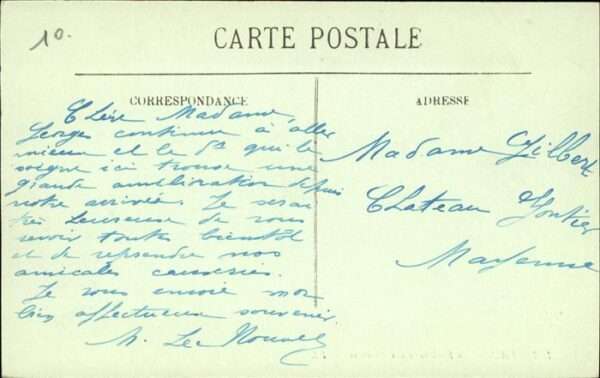 10.
CARTE POSTALE
CORRESPONDANCE
Chère Madame,
Georges continue à aller
mieux et le Dr qui le
soigne ici trouve une
grande amélioration depuis
notre arrivée. Je serai
très heureuse de vous
revoir toutes bientôt
et de reprendre nos
amicales causeries.
Je vous envoie mon
bien affectueux souvenir
ADRESSE
Madame Gilbert
Château Gontier
Mayenne